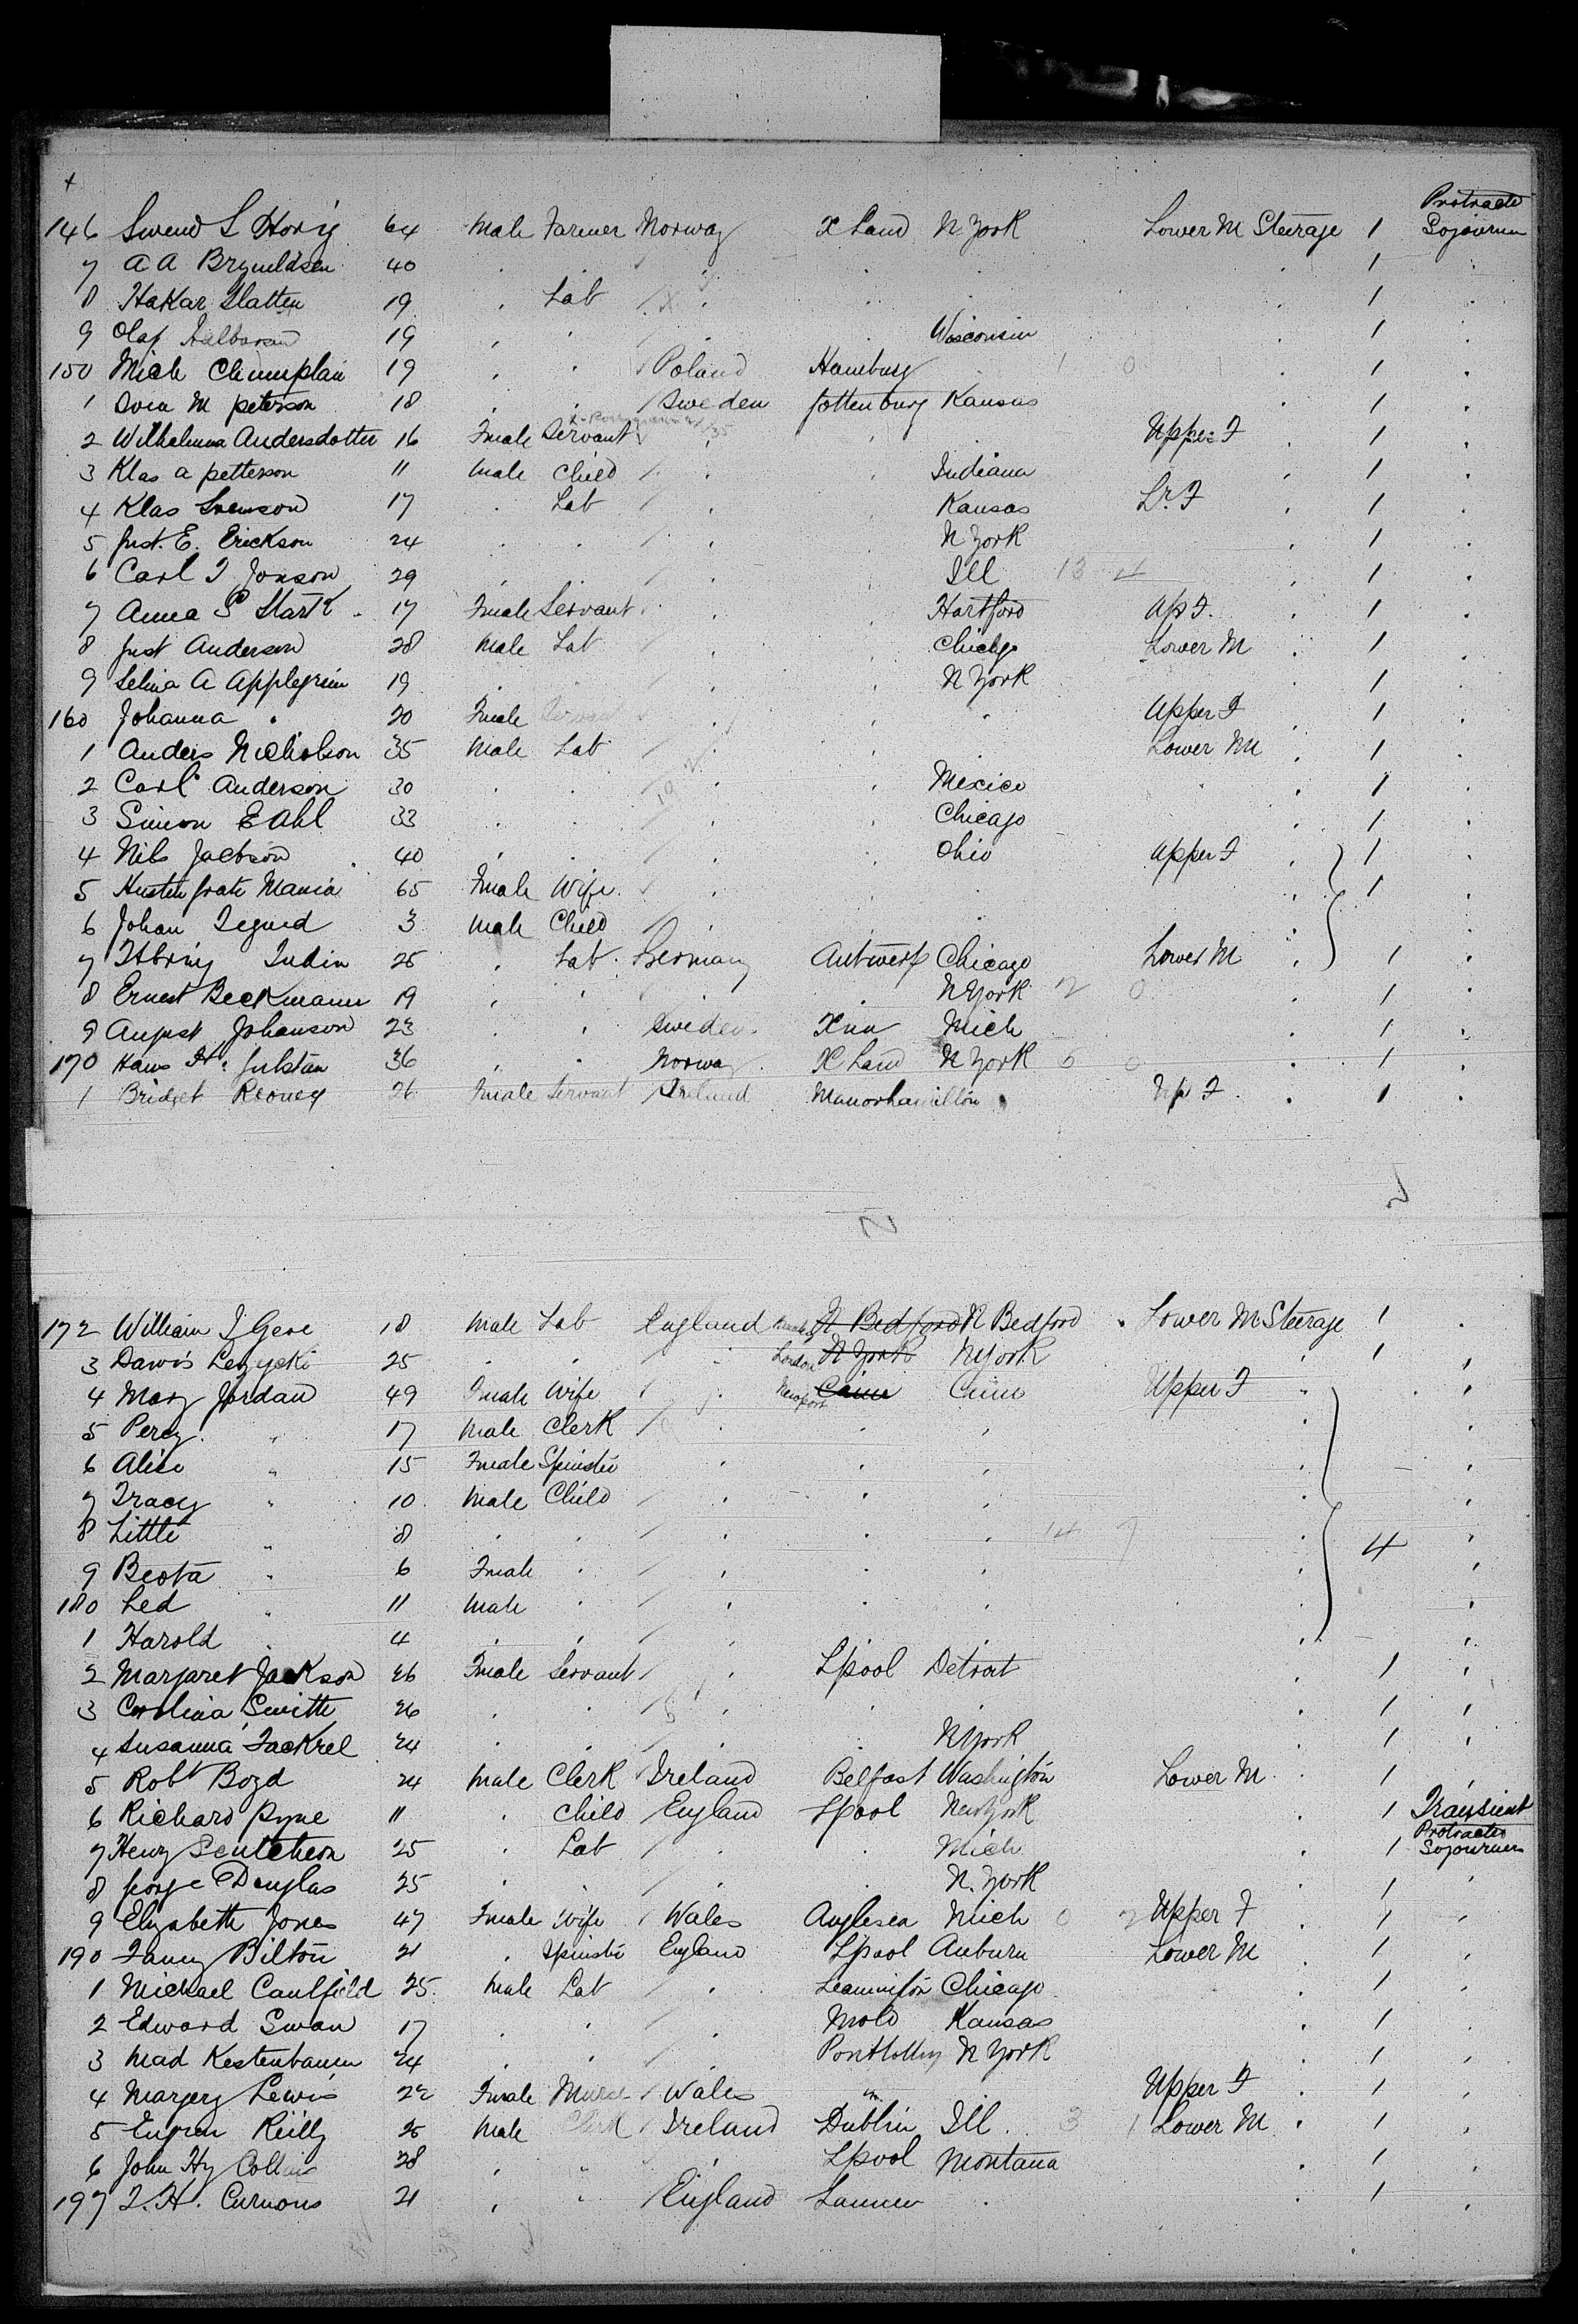 146 Swend L Hovig 64 Male Farmer Norway X Land N. York Lower M Steerage 1 Protracted Sojourn
7 A A Brynildsen 40 . . . . . . 1 .
8 Hakar Slatten 19 . Lab . . . . 1 .
9 Olaf 19 . . . . Wisconsin . 1 .
150 Mich 19 . . Poland Hamburg . 1 0 . 1 .
1 Sven M peterson 18 . . Sweden Gottenburg Kansas . 1 .
2 Wilhelmina Andersdotter 16 Fmale Servant . . . Upper F . 1 .
3 Klas a petterson 11 Male Child . . Indiana . 1 .
4 Klas Svenson 17 . Lab . . Kansas Lr. F . 1 .
5 Gust. E. Erickson 24 . . . . N York . 1 .
6 Carl J Jonson 29 . . . . Ill 13 4 . 1 .
7 Anna S Stark 17 Fmale Servant . . Hartford Up F. . 1 .
8 Gust Anderson 28 Male Lab . . Chicago Lower M . 1 .
9 Selina A Applegrim 19 . . . . N York . 1 .
160 Johanna " 20 Fmale Servant . . . Upper F . 1 .
1 Anders Nicholson 35 Male Lab . . . Lower M . 1 .
2 Carl Anderson 30 . . . . Mexico . . 1 .
3 Simon E Ahl 33 . . . . Chicago . 1 .
4 Nils Jacobson 40 . . . . Ohio Upper F . 1 .
5 Maria 65 Fmale Wife . . . . 1 .
6 Johan Segurd 3 Male Child . . . . .
7 25 . Lab . Germany Antwerp Chicago Lower M . 1 .
8 Ernest Beckmann 19 . . . . N York 2 0 . 1 .
9 August Johanson 23 . . Sweden Xna Mich . 1 .
170 Hans H. 36 . . Norway X Land N York 5 0 . 1 .
1 Bridget Rooney 26 Fmale Servant Ireland Manorhamilton . Up F . . 1 .
172 William J Gere 18 Male Lab England N Bedford N Bedford . Lower M Steerage 1 .
3 Davis 25 . . . London N York N York . 1 .
4 Mary Jordan 49 Fmale Wife . Newport Upper F . .
5 Percy " 17 Male Clerk . . . . .
6 Alice " 15 Fmale Spinster . . . . .
7 Tracey " 10 Male Child . . . . .
8 Little " 8 . . . . . 14 7 . 4 .
9 Beota " 6 Fmale . . . . . .
180 Led " 11 Male . . . . .
1 Harold . 4 . . . . . .
2 Margaret Jackson 26 Fmale Servant . Lpool Detroit . 1 .
3 Carolina Smith 26 . . . . . . 1 .
4 Susanna Fackrel 24 . . . . N York . 1 .
5 Robt Boyd 24 Male Clerk Ireland Belfast Washington Lower M . 1 .
6 Richard Pyne 11 . Child England Lpool New York . 1 Transient
7 Henry Scutcheon 25 . Lab . . Mich . 1 Protracted Sojourn
8 George Douglas 25 . . . . N. York . 1 .
9 Elizabeth Jones 47 Fmale Wife Wales Anglesea Mich 0 2 Upper F . 1 .
190 Fanny Bilton 21 . Spinster England Lpool Auburn Lower M . 1 .
1 Michael Caulfield 25 Male Lab . Leamington Chicago . 1 .
2 Edward Swan 17 . . . Mold Kansas . 1 .
3 Mad Kestenbaum 24 . . . N York . 1 .
4 Margery Lewis 22 Fmale Nurse Wales " Upper F . 1 .
5 Eugene Reilly 25 Male Clerk Ireland Dublin Ill. 3 1 Lower M . 1 .
6 John Hy Collins 28 . " . Lpool Montana . 1 .
197 J. H. Curnons 21 . " England . . 1 .